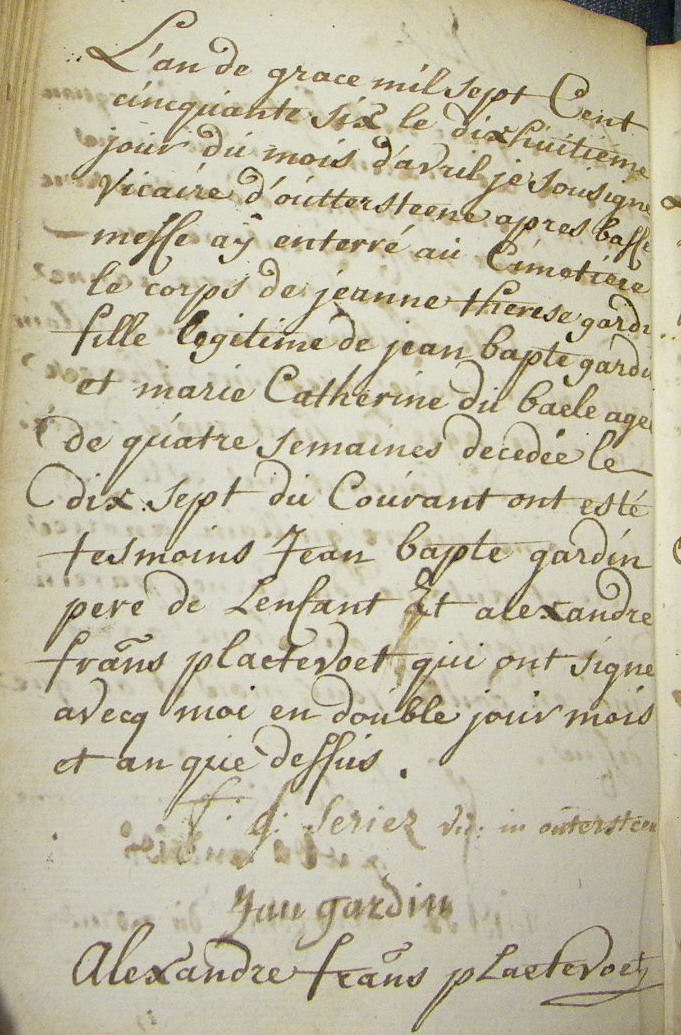 L'an de grace mil sept Cent
cincquante six le dixhuitieme
jour du mois d'avril je sousigne
vicaire d'outtersteene apres basse
messe aÿ enterré au Cimetiere
le corps de jeanne therese gardi
fille legitime de jean bapte gardi
et marie Catherine du baele age
de quatre semaines decedée le
dix sept du Courant ont esté
tesmoins Jean bapte gardin
pere de Lenfant Et alexandre
frans plaetevoet qui ont signe
avecq moi en double jour mois
et an que dessus .
f. j. Seriez vic: in outersteen
Jan gardin
Alexandre frans plaetevoet